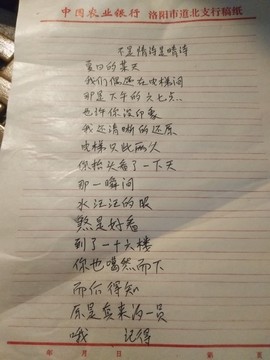 中国农业银行 洛阳市道北支行稿纸
不是情诗是晴诗
夏日的某天
我们偶遇在电梯间
那是下午的六七点..
也许你没印象
我还清晰的还原
电梯只此两人
你抬头看了一下天
那一瞬间
水汪汪的眼
煞是好看
到了一十六楼
你也噶然而下
而后得知
原是卖来的一员
哦 记得
年 月 日 第 页